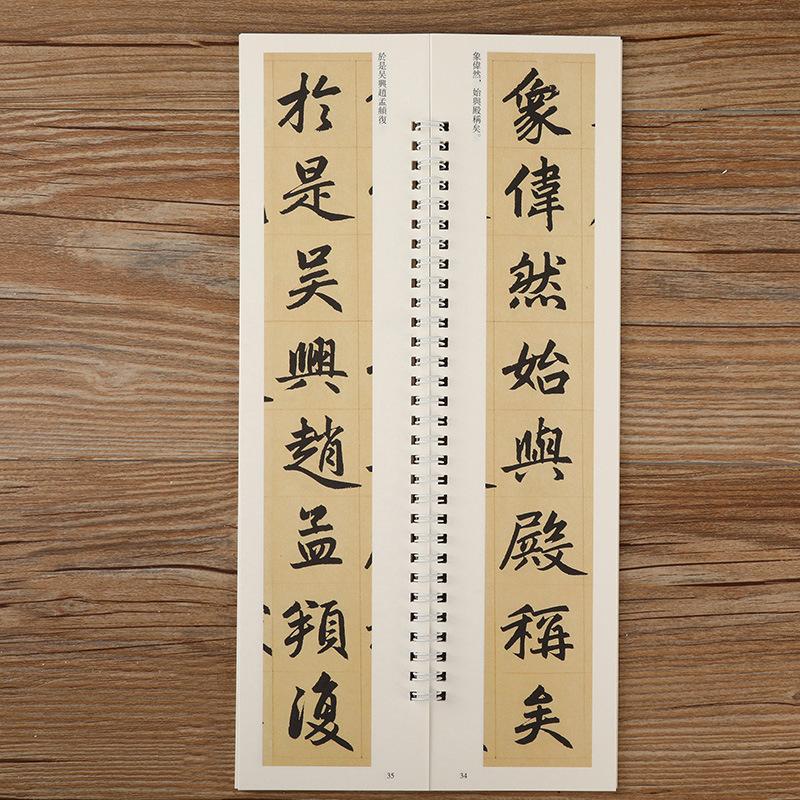 象偉然始與殿稱矣
象偉然，始與殿稱矣。
34
於是吴興趙孟頫復
於是吴興趙孟頫復
35